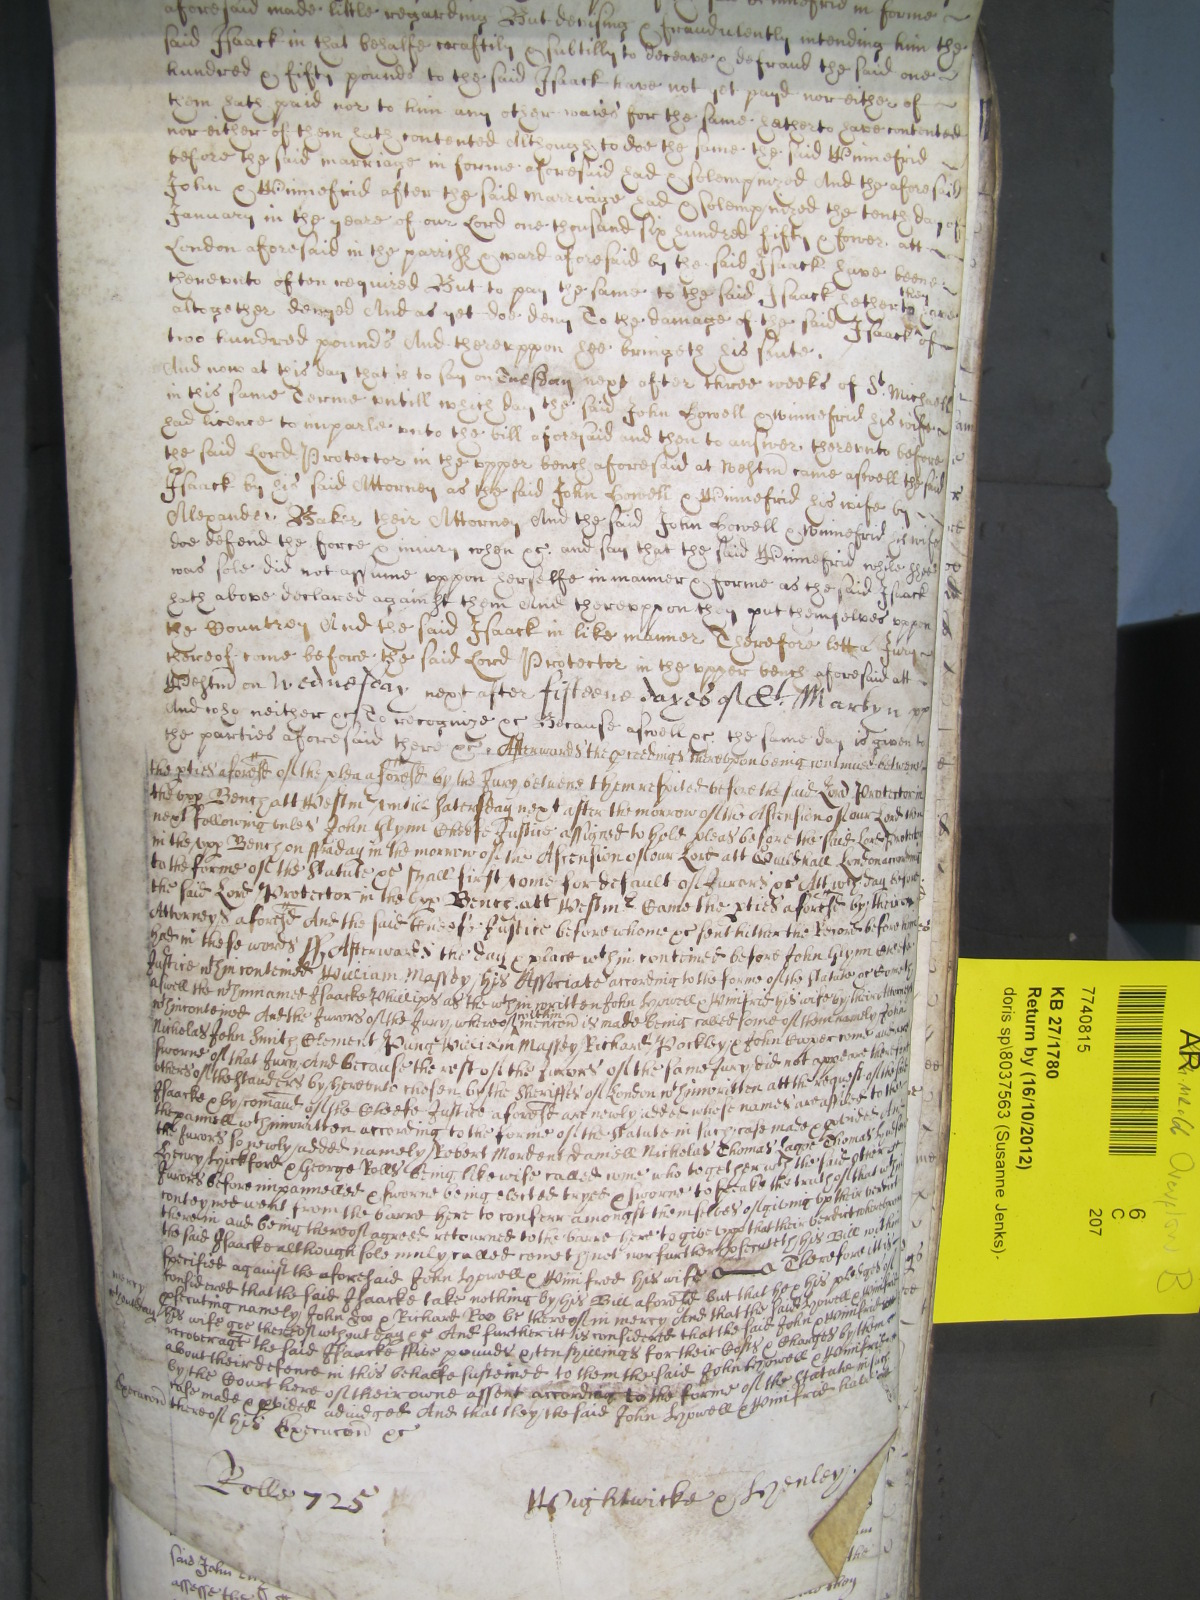 aforesaid made little regarding But devising & fraudulently intending him the
said Isaack in that behalfe craftily & subtilly to deceave & defraud the said one
hundred & fifty pounds to the said Isaack have not yet payd nor either of
them hath paid nor to him any other waies for the same hitherto have contented
nor either of them hath contented Although to doe the same the said Winnefrid
before the said marriage in forme aforesaid had & solempnized And the aforesaid
John & Winnefrid after the said Marriage had & solempnized the tenth day of
January in the yeare of our Lord one thousand six hundred fifty & fower att
London aforesaid in the parrish & ward aforesaid by the said Isaack have beene
therevnto often required But to pay the same to the said Isaack they hetherto have
altogether denyed And as yet doe deny To the damage of the said Isaack of
two hundred pounds And therevppon hee bringeth his suite.
And now at this day that is to say on Tuesday next after three weeks of St. Michaell
in this same Terme vntill which day the said John Howell & Winnefrid his wife
had licence to imparle vnto the bill aforesaid and then to answer therevnto before
the said Lord Protector in the vpper bench aforesaid at Westm came aswell the said
Isaack by his said Attorney as the said John Howell & Winnefrid his wife by
Alexander Baker their Attorney And the said John Howell & Winnefrid his wife
doe defend the force & iniury when &c. and say that the said Winnefrid while shee
was sole did not assume vppon herselfe in manner & forme as the said Isaack
hath above declared against them And therevppon they put themselves vppon
the Countrey And the said Isaack in like manner Therefore lett a Jury
thereof come before the said Lord Protector in the vpper bench aforesaid att
Westm on Wednesday next after fifteene dayes of St. Martyn
And who neither &c To recognize &c Because aswell &c. the same day is given to
the parties aforesaid there &c. Afterwards the proceedings therevpon being continued betweene
the pties aforesd of the plea aforesd by the Jury betweene them respited before the said Lord Protector in
the vpp Bench att Westm vntill Satersday next after the morrow of the Ascension of our Lord then
next following vnles John Glynn Cheefe Justice assigned to hold pleas before the said Lord Protector
in the vpp Bench on ffriday in the morrow of the Ascension of our Lord att Guildhall London according
to the forme of the Statute &c shall first come for default of Jurors &c Att wch day before
the said Lord Protector in the vpp Bench att Westm Came the pties aforesd by their
Attorneys aforesd And the said Cheefe Justice before whome &c sent hither the Record before him
had in these words ss Afterwards the day & place within conteined before John Glynn Cheefe
Justice within conteined William Massey his Associate according to the forme of the statute &c Cometh
aswell the within named Isaacke Phillips as the within written John Howell & Winifrid his wife by their Attorneys
within conteined And the Jurors of the Jury whereof within mencon is made being called some of them namely John
Nicholas John Smith Clement Pung William Massey Richard Pockley & John Cooper come and are
sworne of that Jury And because the rest of the Jurors of the same Jury did not appeare therefore
others of the standers by herevnto chosen by the Sheriffes of London within written att the request of the said
Isaacke & by comaund of the Cheefe Justice aforesd are newly added whose names are affiled to the
panell within written according to the forme of the Statute in such case made & pvided And
the Jurors so newly added namely Robert Mordent Daniell Nicholas Thomas Thomas
Henry Hickford & George Rolls being likewise called come who together with the said other
Jurors before impannelled & sworne being elected tryed & sworne to speake the truth of the within
conteyned went from the barre here to conferr amongst themselves of giving vp their verdict
therein and being thereof agreed retourned to the barre here to give vpp that their verdict wherevpon
the said Isaacke although solemnly called cometh not nor further psecuteth his Bill within
specified against the aforesaid John Howell & Winifred his wife Therefore itt is
considered that the said Isaacke take nothing by his Bill aforesd but that he & his pledges of
psecuting namely John Doo & Richard Roo be thereof in mercy And that the said Howell & Winifrid
his wife goe thereof without day &c And further itt is considered that the said John & Winifrid
recover agt the said Isaacke ffive pounds & ten shillings for their Costs & Charges by them
about their defence in this behalfe susteined to them the said John Howell & Winifrid
by the Court here of their owne assent according to the forme of the Statute in such
case made & pvided adiudged And that they the said John Howell & Winifrid have
thereof his Execucon &c
mercy
Execucon
Rolle 725
Wightwicke & Henley.
said John
assesse the
7740815
KB 27/1780
Return by (16/10/2012)
doris sp\8037563 (Susanne Jenks).
6
C
207
AR